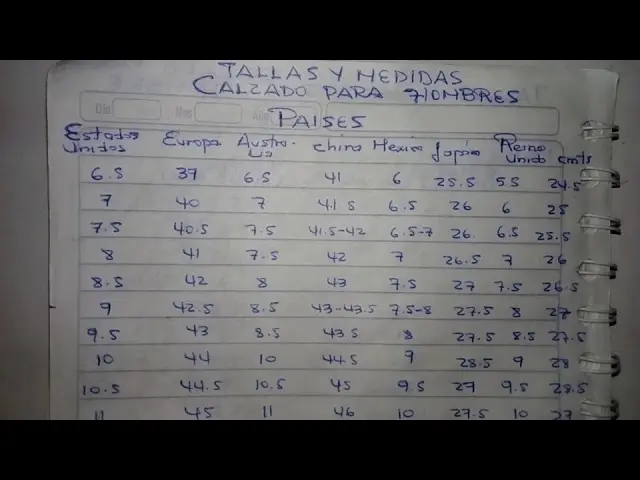 TALLAS Y MEDIDAS
CALZADO PARA HOMBRES
PAISES
Estados Unidos Europa Australia China Mexico Japón Reino Unido cmts
6.5 37 6.5 41 6 25.5 5.5 24.5
7 40 7 41.5 6.5 26 6 25
7.5 40.5 7.5 41.5-42 6.5-7 26. 6.5 25.5
8 41 7.5 42 7 26.5 7 26
8.5 42 8 43 7.5 27 7.5 26.5
9 42.5 8.5 43-43.5 7.5-8 27.5 8 27
9.5 43 8.5 43.5 8 27.5 8.5 27.5
10 44 10 44.5 9 28.5 9 28
10.5 44.5 10.5 45 9.5 29 9.5 28.5
11 45 11 46 10 27.5 10 27